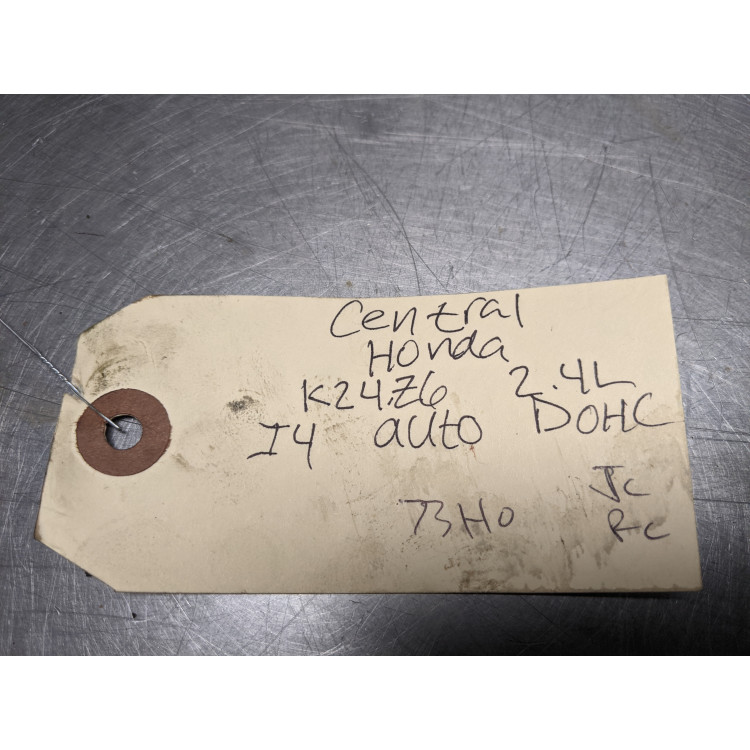 Central
Honda
K24Z6 2.4L
I4 auto DOHC
73H0 Jc
Rc